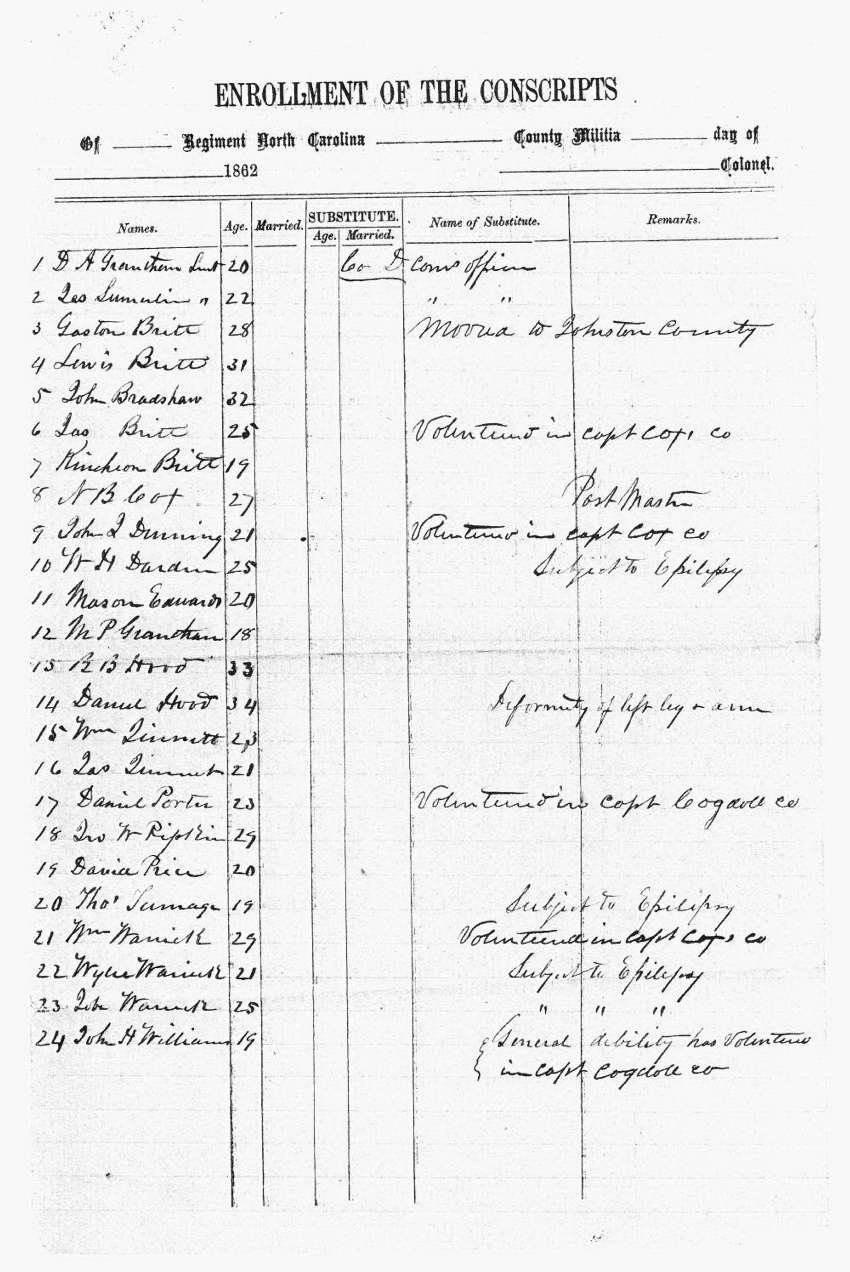 ENROLLMENT OF THE CONSCRIPTS
Of ——— Regiment North Carolina ——— County Militia ——— day of
1862 Colonel.
Names. Age. Married. SUBSTITUTE. Age. Married. Name of Substitute. Remarks.
1 D A Grantham Lieut 20 Co D Com officer
2 Jas " 22 " "
3 Gaston Britt 28 Mooved to Johnston County
4 Lewis Britt 31
5 John Bradshaw 32
6 Jas Britt 25 Volunteered in capt Cox, co
7 Kincheon Britt 19
8 N B Cox 27 Post Master
9 John I Dunning 21 Volunteered in capt Cox co
10 W H Darden 25 Subject to Epilepsy
11 Mason Edwards 20
12 M P Grantham 18
13 B B Hood 33
14 Daniel Hood 34 Deformity of left leg & arm
15 Wm Jinnett 23
16 Jas Jinnet 21
17 Daniel Porter 23 Volunteered in capt Cogdell co
18 Jno W Pipkin 29
19 David Price 20
20 Thos Turnage 19 Subject to Epilepsy
21 Wm Warrick 29 Volunteered in Capt Cox, co
22 Wylie Warrick 21 Subject to Epilepsy
23 Warrick 25 " " "
24 John H Williams 19 General debility has Volunteered
in capt Cogdell co